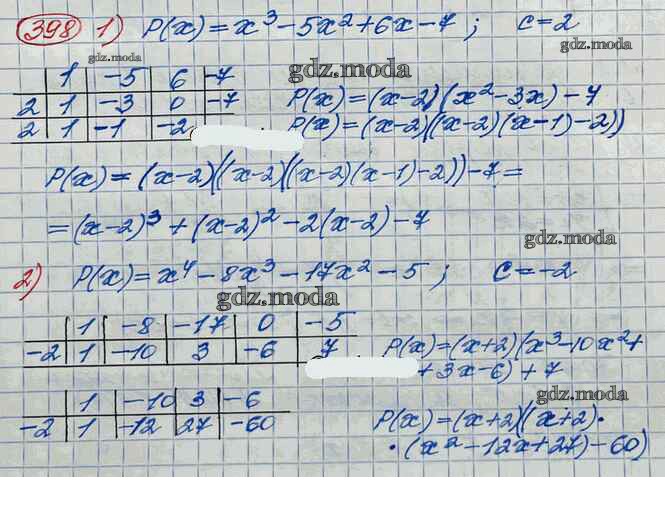 398 1) P(x) = x³ - 5x² + 6x - 7 ; c = 2
gdz.moda
gdz.moda
gdz.moda
1 -5 6 -7
2 1 -3 0 -7 P(x) = (x-2)(x² - 3x) - 7
2 1 -1 -2 P(x) = (x-2)((x-2)(x-1)-2))
P(x) = (x-2)((x-2)((x-2)(x-1)-2)) - 7 =
= (x-2)³ + (x-2)² - 2(x-2) - 7
gdz.moda
2) P(x) = x⁴ - 8x³ - 17x² - 5 ; c = -2
gdz.moda
1 -8 -17 0 -5
-2 1 -10 3 -6 7 P(x) = (x+2)(x³ - 10x² +
+ 3x - 6) + 7
gdz.moda
1 -10 3 -6
-2 1 -12 27 -60 P(x) = (x+2)((x+2)·
·(x² - 12x + 27) - 60)